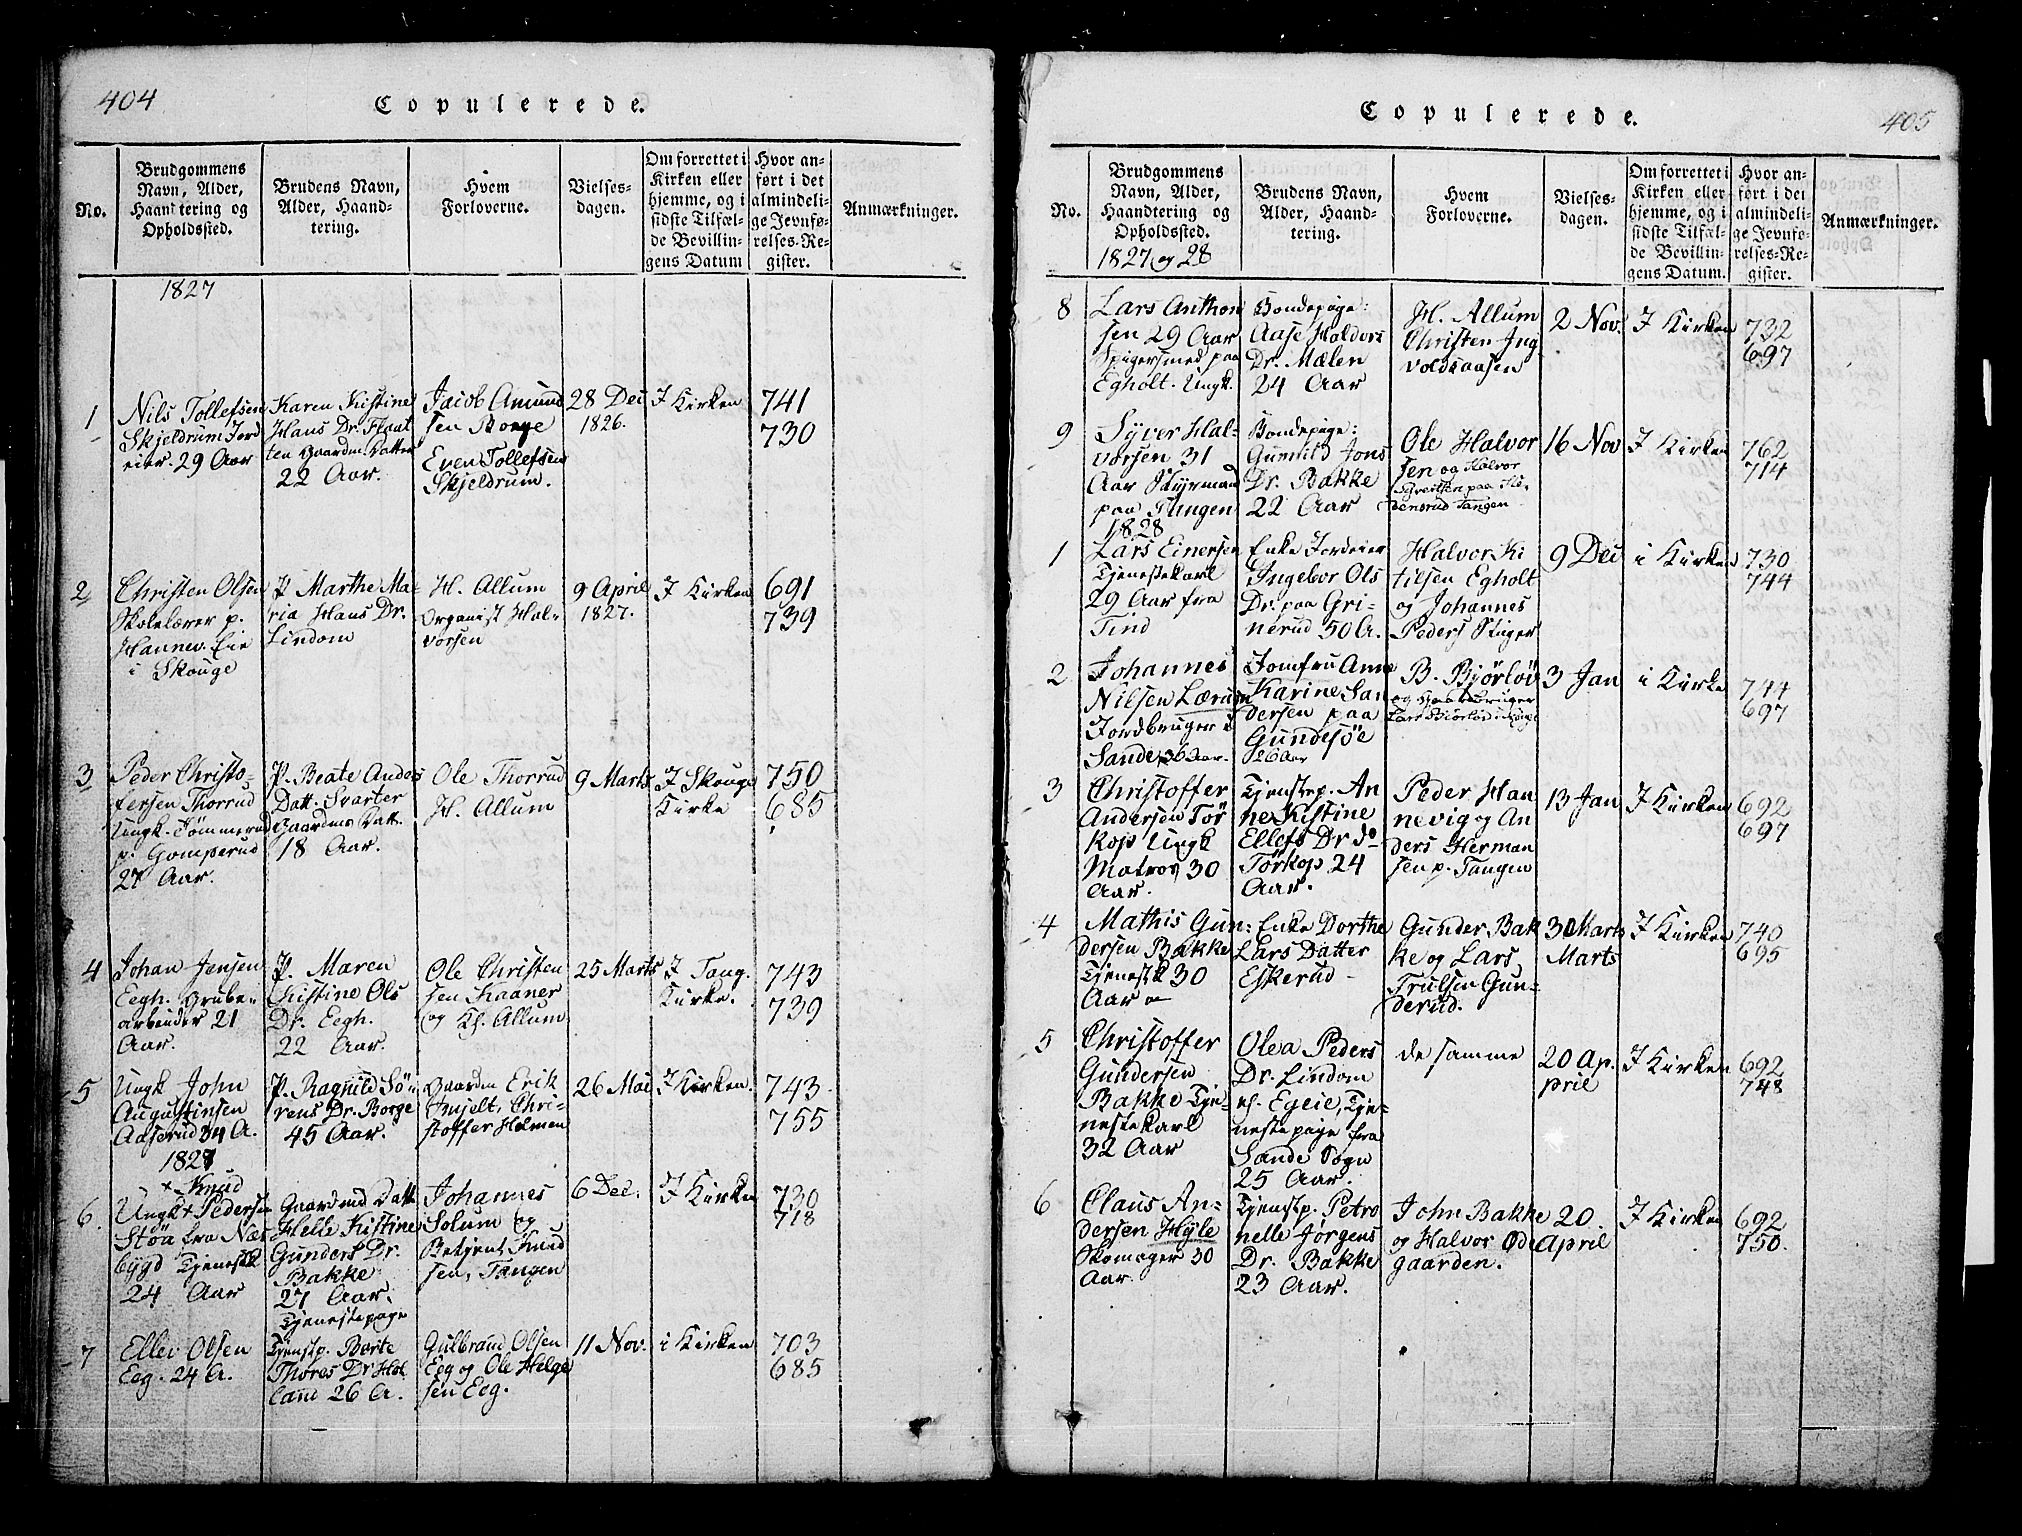 404
Copulerede.
No.
Brudgommens
Navn, Alder,
Haandtering og
Opholdssted.
Brudens Navn,
Alder, Haand-
tering.
Hvem
Forloverne.
Vielses-
dagen.
Om forrettet i
Kirken eller
hjemme, og i
sidste Tilfæl-
de Bevillin-
gens Datum
Hvor an-
ført i det
almindeli-
ge Jevnfø-
relses-Re-
gister.
Anmærkninger.
1827
1
Nils Tollefsen
Skjeldrum Jord
eier. 29 Aar
Karen Kistine
Hans Dr. Flaat
ten Gaardm. Datter
22 Aar.
Jacob Amund
sen Borge
Even Tollefsen
Skjeldrum.
28 Dec
1826.
I Kirken
741
730
2
Christen Olsen
Skolelærer p.
Hannev. Eie
i Skouge
P. Marthe Ma-
ria Hans Dr.
Lindom
H. Allum
Organist Hal-
vorsen
9 April
1827.
I Kirken
691
739
3
Peder Christo-
fersen Thorrud
Ungk. Tømmermd
p. Gomperud
27 Aar.
P. Beate Anders
Datt. Svarter
Gaardms Datt.
18 Aar.
Ole Thorrud
H. Allum
9 Marts
I Skouge
Kirke
750
685
4
Johan Jensen
Eegh. Grube-
arbeider 21
Aar.
P. Maren
Kistine Ols
Dr. Eegh.
22 Aar.
Ole Christen
sen Kaaner
og H. Allum
25 Marts
I Tang.
Kirke.
743
739
5
Ungk John
Augustinsen
Aaserud 34 A.
P. Ragnild Sø-
rens Dr. Borge
45 Aar.
Gaardm Erik
Smjelt, Chri-
stoffer Holmen
26 Mai
I Kirken.
743
755
1827
+ Knud
6.
Ungk + Pedersen
Støa fra Næs
bygd Tjenestk
24 Aar
Gaardmd Datt
Helle Kistine
Gunders Dr.
Bakke
27 Aar.
Tjenestepige
Johannes
Solum og
Betjent Knud
sen, Tangen
6 Dec.
I Kirken
730
718
7
Ellev Olsen
Eeg. 24 A.
Tjenstp. Berte
Thores Dr Hol
land 26 A.
Gulbrand Olsen
Eeg og Ole Helge
sen Eeg.
11 Nov.
i Kirken
703
685
Copulerede.
405
No.
Brudgommens
Navn, Alder,
Haandtering og
Opholdssted.
1827 og 28
Brudens Navn,
Alder, Haand-
tering.
Hvem
Forloverne.
Vielses-
dagen.
Om forrettet i
Kirken eller
hjemme, og i
sidste Tilfæl-
de Bevillin-
gens Datum.
Hvor an-
ført i det
almindeli-
ge Jevnfø-
relses-Re-
gister.
Anmærkninger.
8
Lars Anthon
sen 29 Aar
Spigersmed paa
Egholt. Ungk.
Bondepige:
Aase Haldvors
Dr. Mælen
24 Aar
H. Allum
Christen Ing
voldsaasen
2 Nov.
I Kirken
732
697
9
Syver Hal-
vorsen 31
Aar Styrmand
paa Tangen
Bondepige:
Gunnild Jons
Dr. Bakke
22 Aar
Ole Halvor
sen og Halvor
16 Nov
I Kirken
762
714
1828
1
Lars Einersen
Tjenestekarl
29 Aar fra
Tind
Enke Jordeier
Ingebor Ols
Dr. paa Gri-
nerud 50 A.
Halvor Ki
tilsen Egholt
og Johannes
Peders Stiger
9 Dec
i Kirken
730
744
2
Johannes
Nilsen Lærum
Jordbruger i
Sande, 36 Aar.
Jomfru Anne
Karine San
dersen paa
Gundesøe
26 Aar
B. Bjørløv
og Gaardbruger
3 Jan
i Kirke
744
697
3
Christoffer
Andersen Tør
kop Ungk
Matros 30
Aar.
Tjenstep. An
ne Kistine
Ellefs Dr do
Tørkop 24
Aar.
Peder Han
nevig og An
ders Herman
sen p. Tangen
13 Jan
I Kirken
692
697
4
Mathis Gun:
dersen Bakke
Tjenestk 30
Aar
Enke Dorthe
Lars Datter
Eskerud
Gunder Bak
ke og Lars
Trulsen Gun-
derud.
30 Marts
Marts
I Kirken
740
695
5
Christoffer
Gundersen
Bakke Tje-
nestekarl
32 Aar
Olea Peders
Dr. Lindom
Egeie, Tje-
nestepige fra
Sande Sogn
25 Aar.
de samme
20 Ap.
pril
I Kirken
692
748
6
Claus An-
dersen Hyle
Skomager 30
Aar.
Tjenstp. Petro
nelle Jørgens
Dr. Bakke
23 Aar.
John Bakke
og Halvor Øde
gaarden.
20
April
I Kirken
692
750.